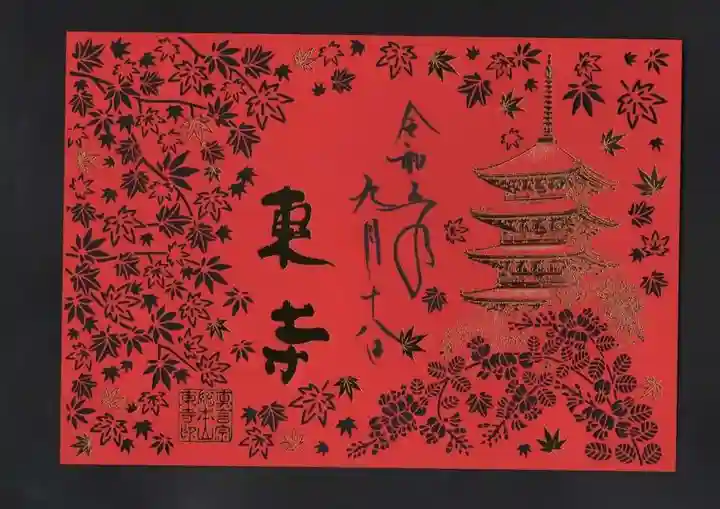 令和 年
九月十八日
東寺
真言宗
総本山
東寺印